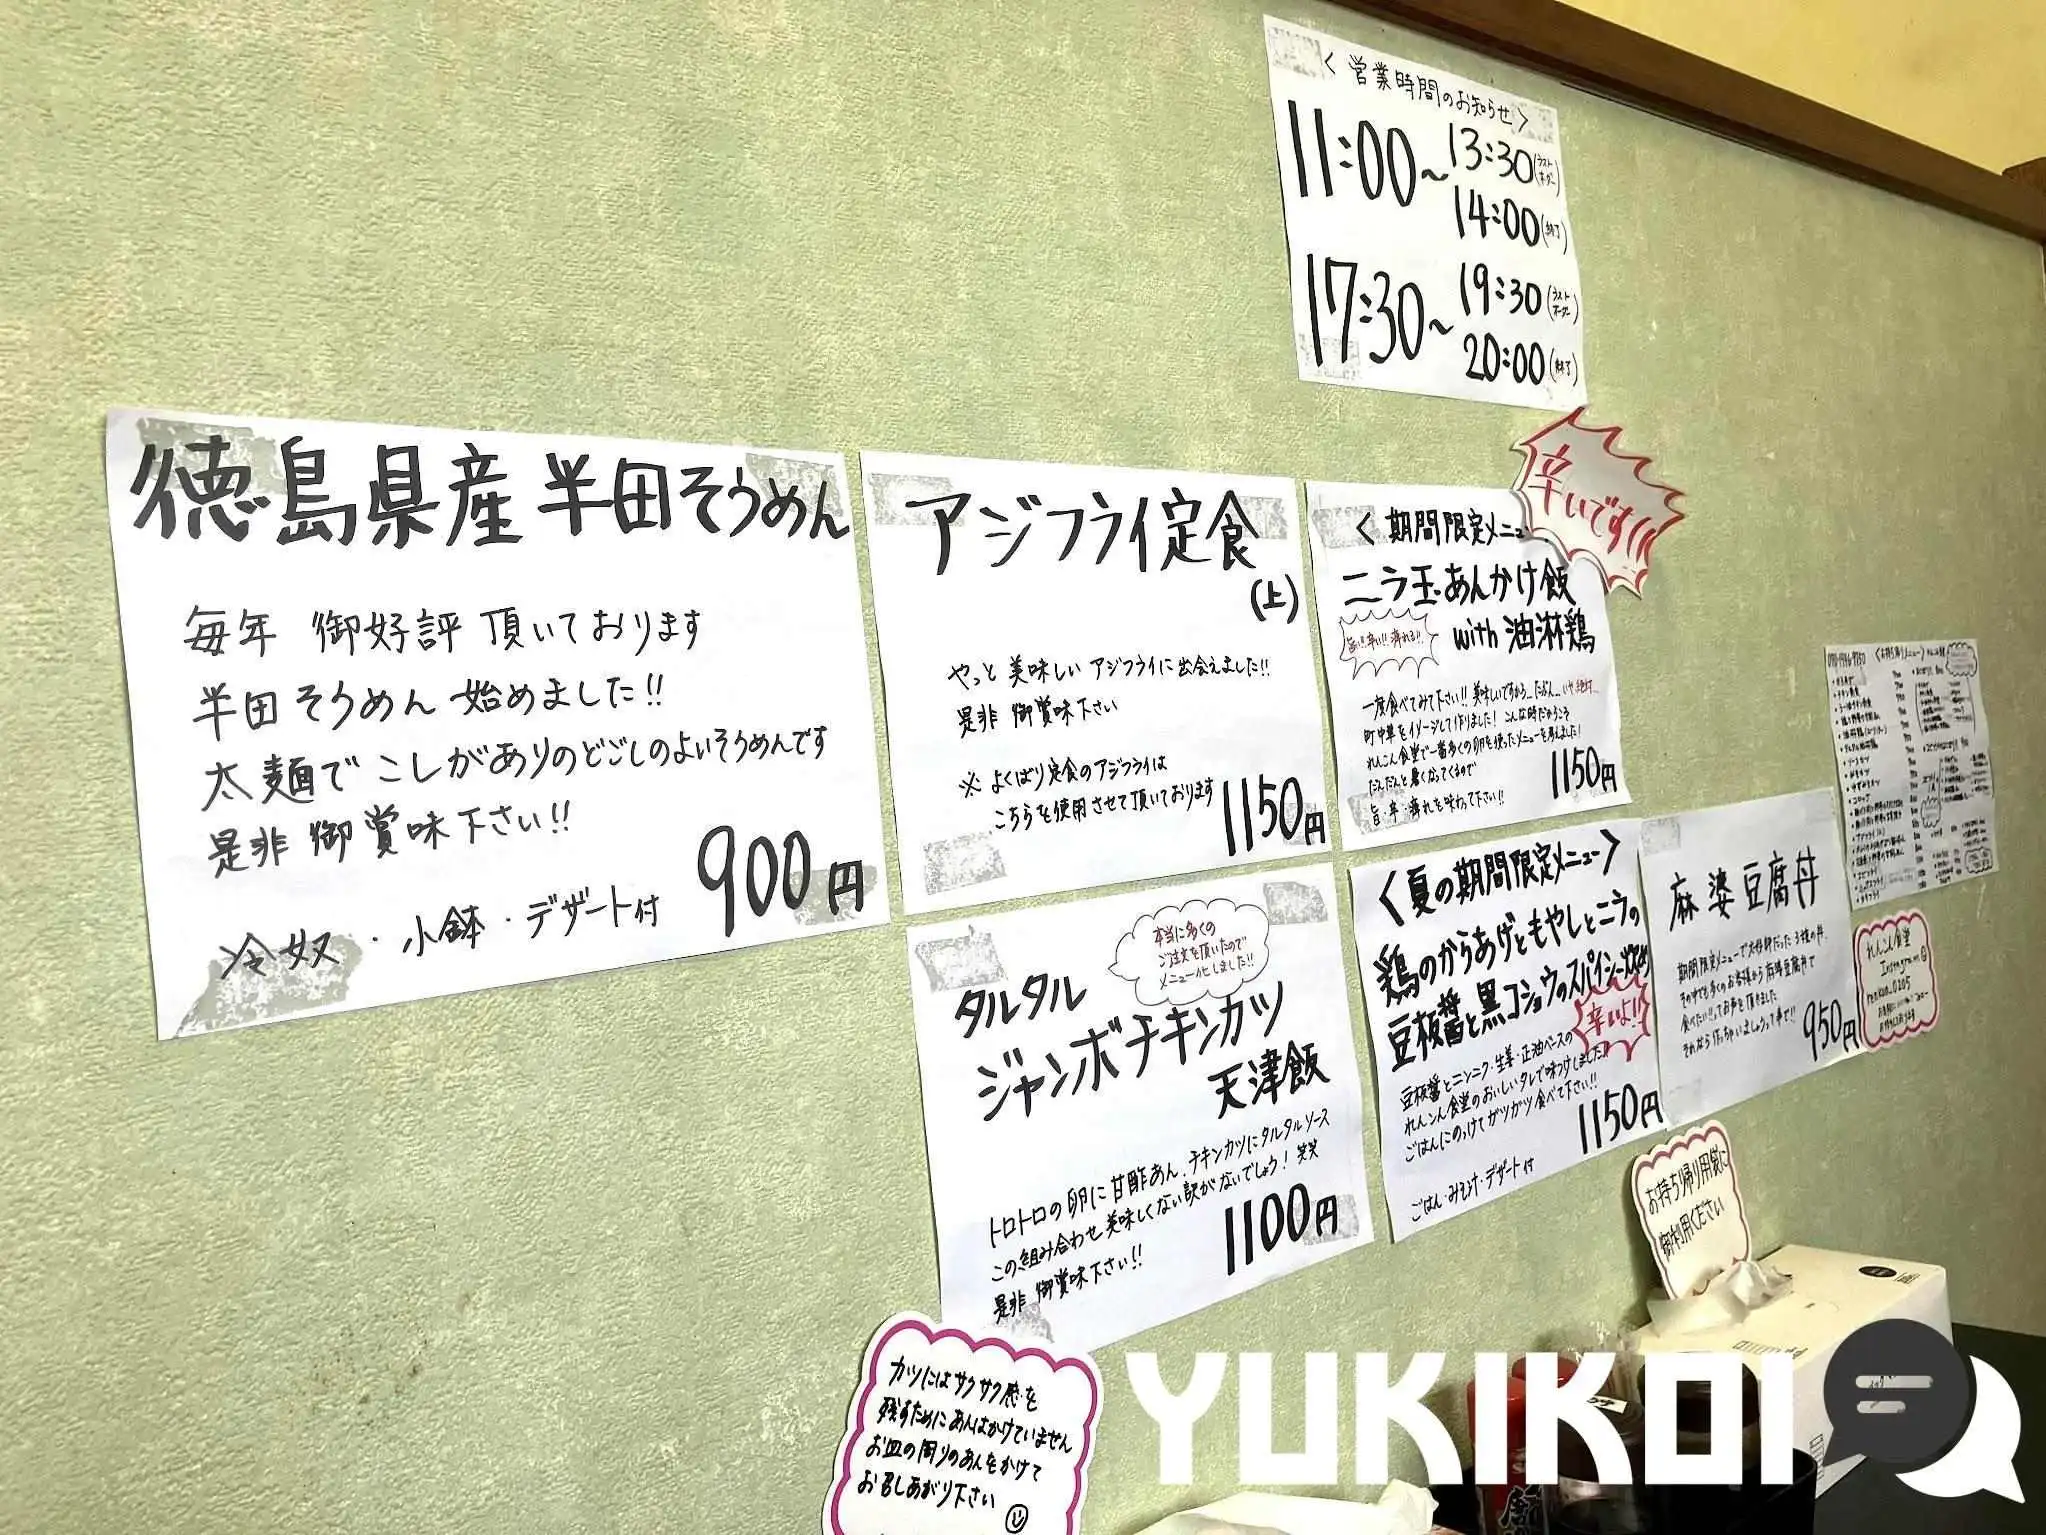 <営業時間のお知らせ>
11:00~13:30(ラストオーダー)
14:00(終了)
17:30~19:30(ラストオーダー)
20:00(終了)
徳島県産半田そうめん
毎年 御好評 頂いております
半田そうめん 始めました!!
太麺で こしがありのどごしのよいそうめんです
是非 御賞味下さい!!
900円
冷奴・小鉢・デザート付
アジフライ定食
(上)
やっと 美味しい アジフライに出会えました!!
是非 御賞味下さい
※ よくばり定食のアジフライは
こちらを使用させて頂いております
1150円
辛いです!!
<期間限定メニュー
ニラ玉あんかけ飯
with 油淋鶏
旨い!!辛い!!痺れる!!
一度食べてみて下さい!! 美味しいですから…たぶん…いや絶対…
町中華をイメージして作りました! こんな時だからこそ
れんこん食堂で一番多くの卵を使ったメニューを考えました!
だんだんと暑くなってくるので
旨・辛・痺れを味わって下さい!!
1150円
本当に多くの
ご注文を頂いたので
メニュー化しました!!
タルタル
ジャンボチキンカツ
天津飯
トロトロの卵に甘酢あん、チキンカツにタルタルソース
この組み合わせ美味しくない訳がないでしょう! 笑笑
是非 御賞味下さい!!
1100円
<夏の期間限定メニュー>
鶏のからあげともやしとニラの
豆板醤と黒コショウのスパイシー炒め
辛いよ!!
豆板醤とニンニク・生姜・正油ベースの
れんこん食堂のおいしいタレで味つけしました!!
ごはんにのっけてガツガツ食べて下さい!!
1150円
ごはん・みそ汁・デザート付
麻婆豆腐丼
期間限定メニューで大好評だった3種の丼、
その中でも多くのお客様から麻婆豆腐丼で
食べたい!!ってお声を頂きました
それなら作っちゃいましょうって事で!!
950円
<お持ち帰りメニュー>
れんこん食堂
Instagram
renkon_0205
お持ち帰り用袋に
御利用ください
カツにはサクサク感を
残すためにあんはかけていません
お皿の周りのあんをかけて
お召しあがり下さい
YUKIKOI